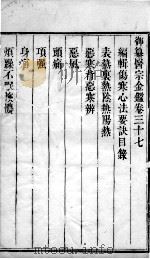 御纂醫宗金鑑卷三十七
編輯傷寒心法要訣目錄
表裏寒熱陰陽熱
惡寒背惡寒辨
惡風
頭痛
項強
身痛
煩躁不眠懊憹